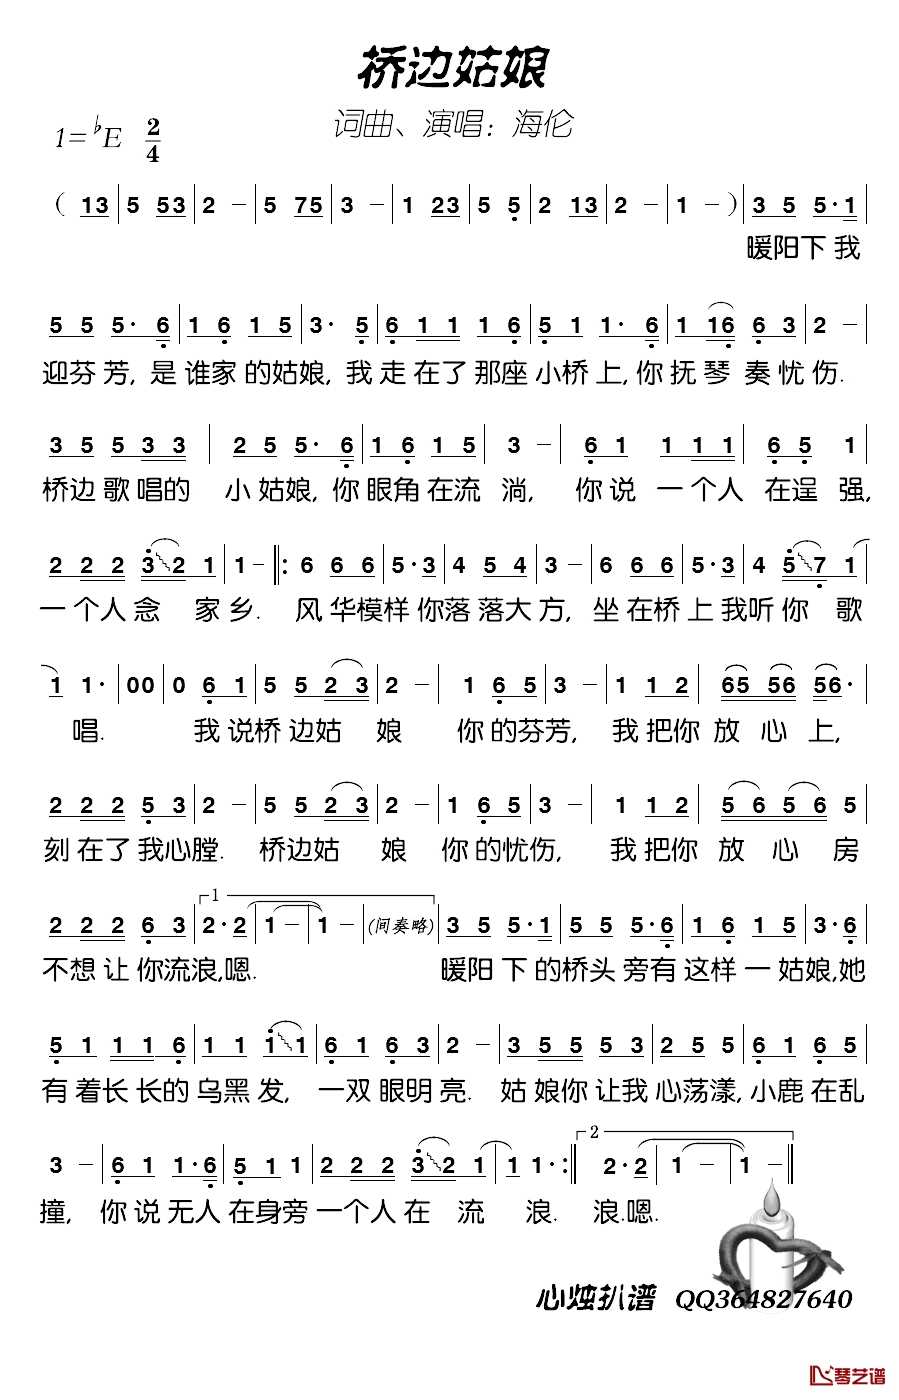 桥边姑娘
词曲、演唱：海伦
1=♭E 2/4
( 13 | 5 53 | 2 − | 5 75 | 3 − | 1 23 | 5 5 | 2 13 | 2 − | 1 − ) | 3 5 5·1 |
暖阳下 我
5 5 5· 6 | 1 6 1 5 | 3· 5 | 6 1 1 1 6 | 5 1 1· 6 | 1 16 6 3 | 2 − |
迎芬 芳, 是 谁家 的姑娘, 我 走 在了 那座 小桥 上,你 抚 琴 奏 忧 伤.
3 5 5 3 3 | 2 5 5· 6 | 1 6 1 5 | 3 − | 6 1 1 1 1 | 6 5 1 |
桥边 歌 唱的 小 姑娘, 你 眼角 在流 淌, 你 说 一 个人 在 逞 强,
2 2 2 3 2 1 | 1 − ‖: 6 6 6 | 5·3 | 4 5 4 | 3 − | 6 6 6 | 5·3 | 4 5 7 1 |
一 个人 念 家 乡. 风 华模样 你落 落大 方, 坐 在桥 上 我听 你 歌
1 1· | 0 0 | 0 6 1 | 5 5 2 3 | 2 − | 1 6 5 | 3 − | 1 1 2 | 65 56 56· |
唱. 我 说桥 边姑 娘 你 的芬芳, 我 把你 放 心 上,
2 2 2 5 3 | 2 − | 5 5 2 3 | 2 − | 1 6 5 | 3 − | 1 1 2 | 5 6 5 6 5 |
刻 在了 我心膛. 桥边姑 娘 你 的忧伤, 我 把你 放 心 房
2 2 2 6 3 | 1 2·2 | 1 − | 1 − (间奏略) | 3 5 5·1 | 5 5 5·6 | 1 6 1 5 | 3·6 |
不想 让 你流浪,嗯. 暖阳 下 的桥头 旁有 这样 一 姑娘,她
5 1 1 1 6 | 1 1 1 1 | 6 1 6 3 | 2 − | 3 5 5 5 3 | 2 5 5 | 6 1 6 5 |
有 着长 长的 乌黑 发, 一双 眼明 亮. 姑 娘你 让我 心荡漾, 小鹿 在乱
3 − | 6 1 1·6 | 5 1 1 | 2 2 2 3 2 1 | 1 1· :‖ 2 2·2 | 1 − | 1 − ‖
撞, 你 说 无人 在身旁 一个人 在 流 浪. 浪.嗯.
心烛扒谱 QQ364827640
琴艺谱